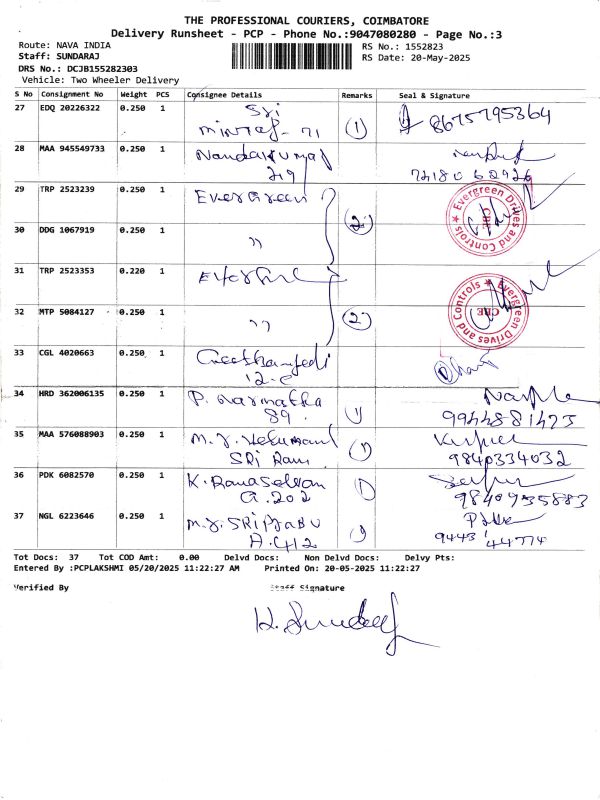 THE PROFESSIONAL COURIERS, COIMBATORE
Delivery Runsheet - PCP - Phone No.:9047080280 - Page No.:3
Route: NAVA INDIA
RS No.: 1552823
Staff: SUNDARAJ
RS Date: 20-May-2025
DRS No.: DCJB155282303
Vehicle: Two Wheeler Delivery
S No Consignment No Weight PCS Consignee Details Remarks Seal & Signature
27 EDQ 20226322 0.250 1 Sri
71 (1) 8675795364
28 MAA 945549733 0.250 1 Nandakumar
219
29 TRP 2523239 0.250 1 Evergreen
Evergreen Drives and Controls
CBE
(2)
30 DDG 1067919 0.250 1 ,,
31 TRP 2523353 0.220 1
Evergreen Drives and Controls
CBE
32 MTP 5084127 0.250 1 ,, (2)
33 CGL 4020663 0.250 1
12-C
34 HRD 362006135 0.250 1 P. Narmatha
89. 1) 9944881473
35 MAA 576088903 0.250 1 M.J.
SRI Ram 1) 9840334032
36 PDK 6082570 0.250 1 K. Ramaselvan
G.202 1) 9840955883
37 NGL 6223646 0.250 1 M.J. SRIPRABU
A.C412 1) 9443 44774
Tot Docs: 37 Tot COD Amt: 0.00 Delvd Docs: Non Delvd Docs: Delvy Pts:
Entered By :PCPLAKSHMI 05/20/2025 11:22:27 AM Printed On: 20-05-2025 11:22:27
Verified By Staff Signature